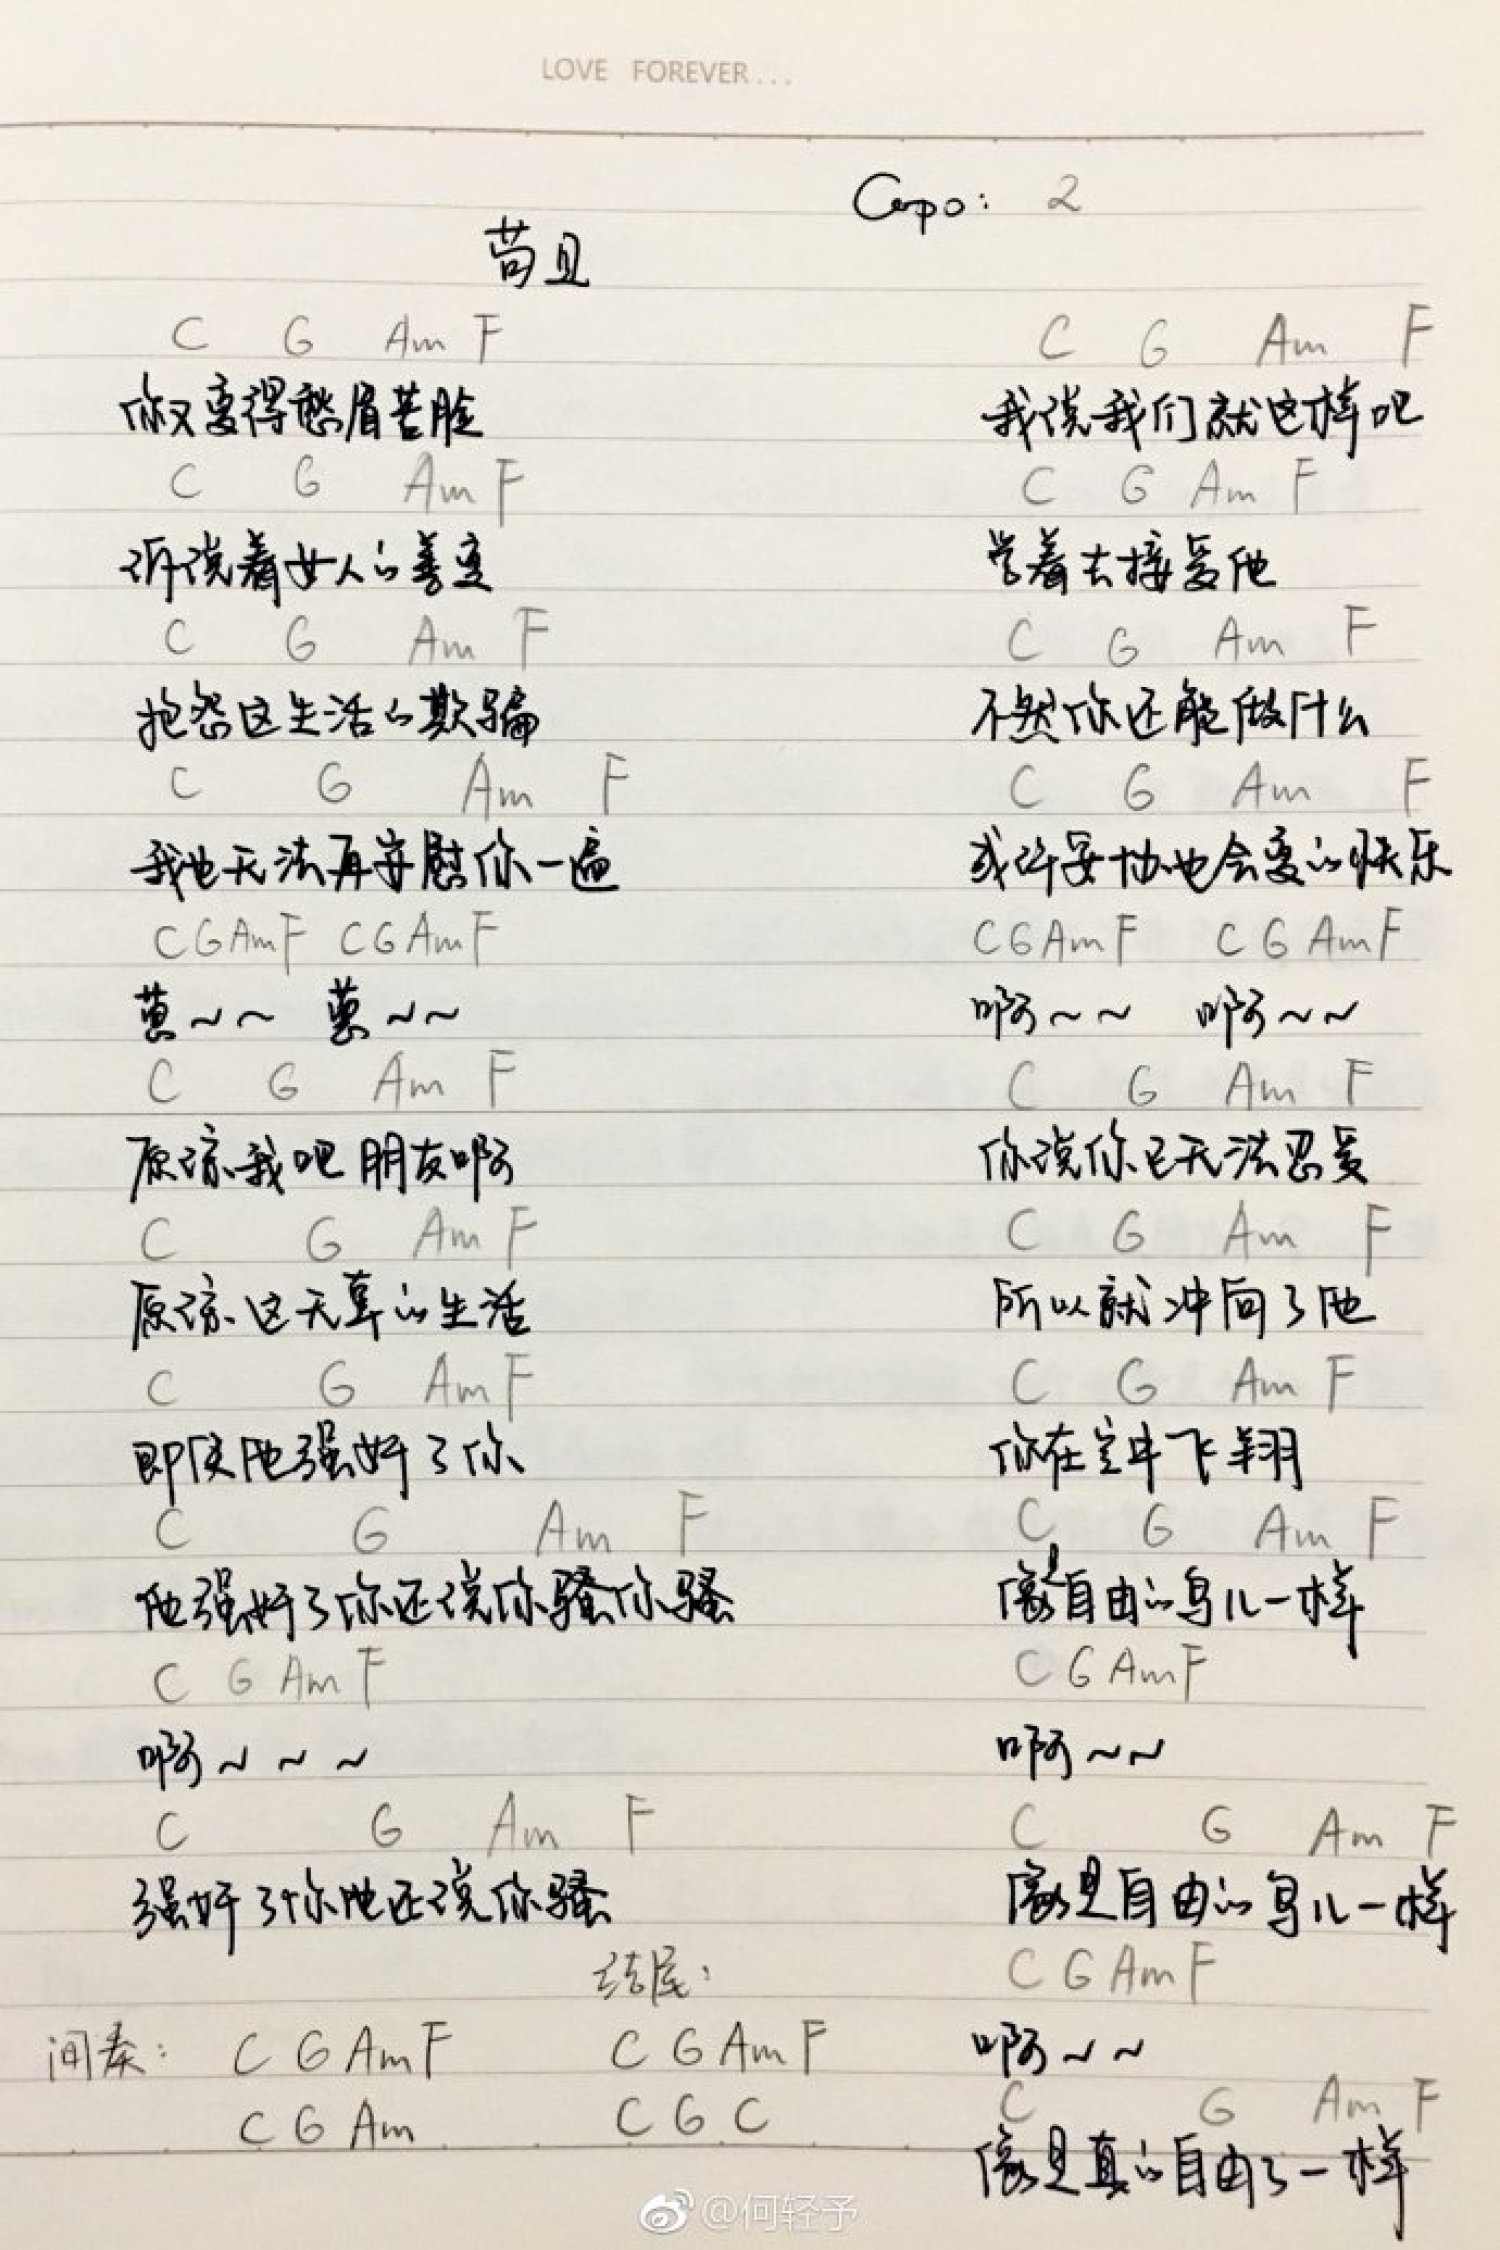 LOVE FOREVER...
Capo: 2
苟且
C G Am F
你又变得愁眉苦脸
C G Am F
诉说着女人的善变
C G Am F
抱怨这生活的欺骗
C G Am F
我也无法再安慰你一遍
C G Am F C G Am F
蒽~~ 蒽~~
C G Am F
原谅我吧朋友啊
C G Am F
原谅这无辜的生活
C G Am F
即使他强奸了你
C G Am F
他强奸了你还说你骚你骚
C G Am F
啊~~~
C G Am F
强奸了你他还说你骚
间奏: C G Am F
C G Am
结尾:
C G Am F
C G C
C G Am F
我说我们就这样吧
C G Am F
学着去接受他
C G Am F
不然你还能做什么
C G Am F
或许妥协也会变的快乐
C G Am F C G Am F
啊~~ 啊~~
C G Am F
你说你已无法忍受
C G Am F
所以就冲向了他
C G Am F
你在空中飞翔
C G Am F
像自由的鸟儿一样
C G Am F
啊~~
C G Am F
像是自由的鸟儿一样
C G Am F
啊~~
C G Am F
像是真的自由了一样
@何轻予